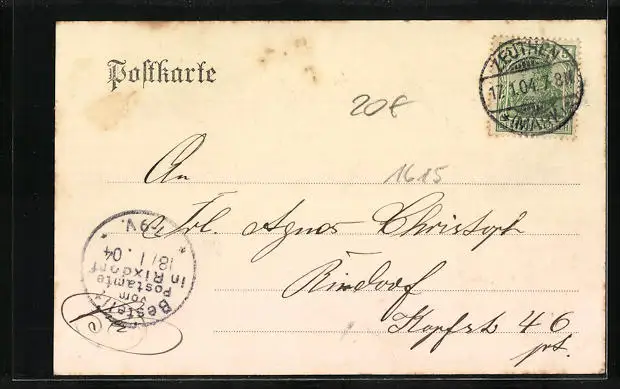 Postkarte
ZEUTHEN
17.1.04.7-8N
*(MARK)*
208
1615
An
Frl. Agnes Christoph
Rixdorf
Kopfstr 46
pt.
Bestellt
vom
Postamte
in Rixdorf
18/1.04
7-9V.